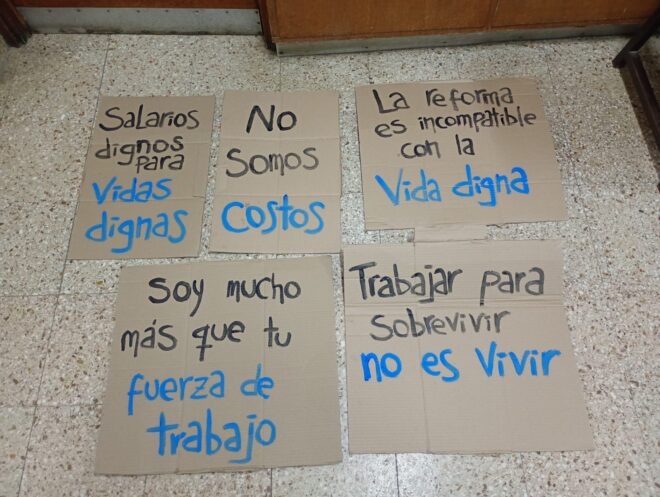 Salarios
dignos
para
Vidas
dignas
No
Somos
Costos
La reforma
es incompatible
con la
Vida digna
Soy mucho
más que tu
fuerza de
trabajo
Trabajar para
Sobrevivir
no es Vivir